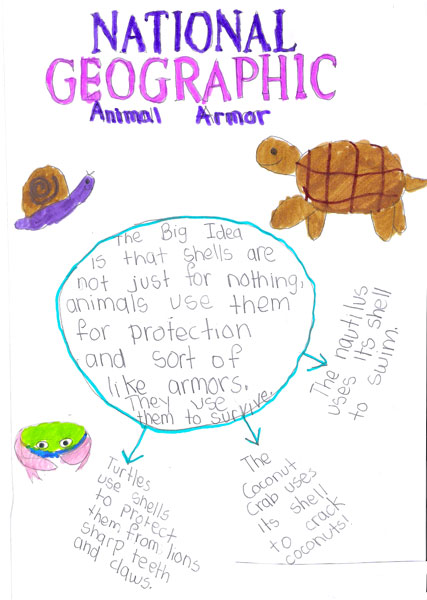 NATIONAL
GEOGRAPHIC
Animal Armor
The Big Idea
is that shells are
not just for nothing,
animals use them
for protection
and sort of
like armors.
They use
them to survive.
The nautilus
uses its shell
to swim.
The
Coconut
Crab uses
its shell
to crack
coconuts!
Turtles
use shells
to protect
them from lions
sharp teeth
and claws.